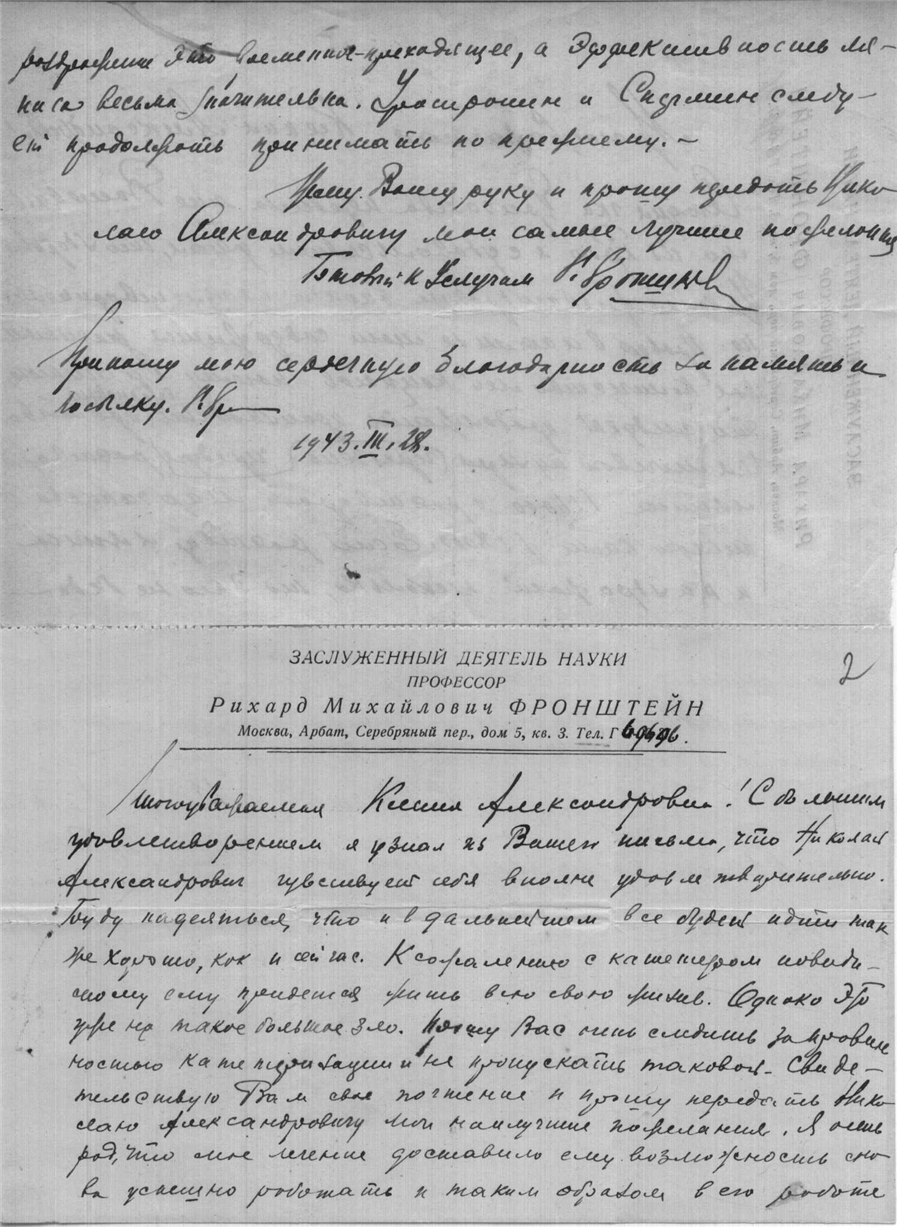 раздражение это временно-преходящее, а эффективность ля-
писа весьма значительна. Уротропин и Сидимин следу-
ет продолжать принимать по прежнему. -
Жму Вашу руку и прошу передать Нико
лаю Александровичу мои самые лучшие пожелания
Готовый к услугам Р. Фронштейн
Приношу мою сердечную благодарность за память и
посылку. Р. Фр
1943. III. 28.
2
ЗАСЛУЖЕННЫЙ ДЕЯТЕЛЬ НАУКИ
ПРОФЕССОР
Рихард Михайлович ФРОНШТЕЙН
Москва, Арбат, Серебряный пер., дом 5, кв. 3. Тел. Г
Многоуважаемая Ксения Александровна! С большим
удовлетворением я узнал из Вашего письма, что Николай
Александрович чувствует себя вполне удовлетворительно.
Буду надеяться, что и в дальнейшем все будет идти так
же хорошо, как и сейчас. К сожалению с катетером повиди-
мому ему придется жить всю свою жизнь. Однако это
уже не такое большое зло. Прошу Вас очень следить за правиль
ностью катетеризации и не пропускать таковой. Свиде-
тельствую Вам свое почтение и прошу передать Нико
лаю Александровичу мои наилучшие пожелания. Я очень
рад, что мое лечение доставило ему возможность сно
ва успешно работать и таким образом в его работе